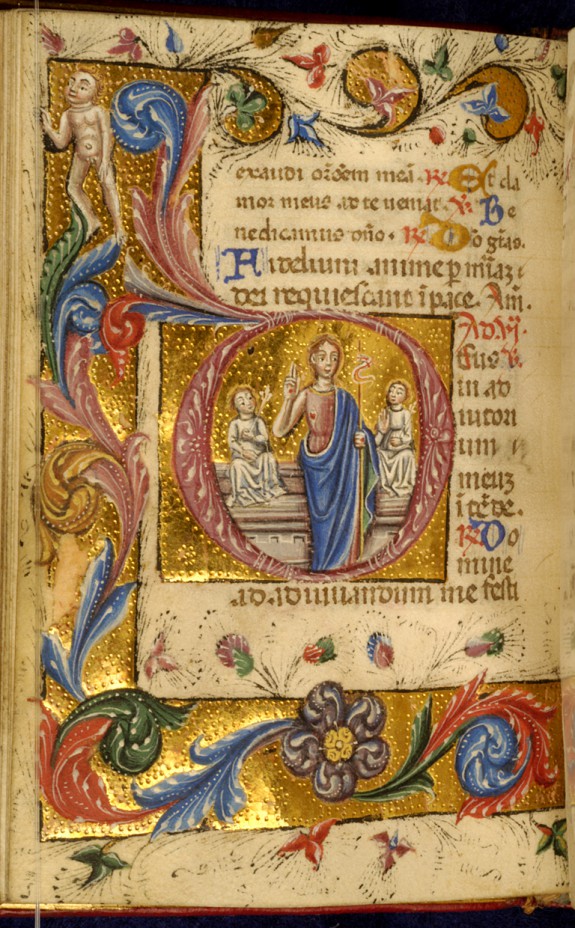 exaudi or̄oēm meā. R̃ Et cla
mor meus ad te ueniat. V̄ Be
nedicamus dn̄o. R̃ Do gr̄as.
Fidelium anime p mīaz
dei requiescant ī pace. Am̄.
Ad vj.
Eus V̄.
in ad
iutori
um
meuz
ītēde.
R̃ Do
mine
ad adiuuandum me festi